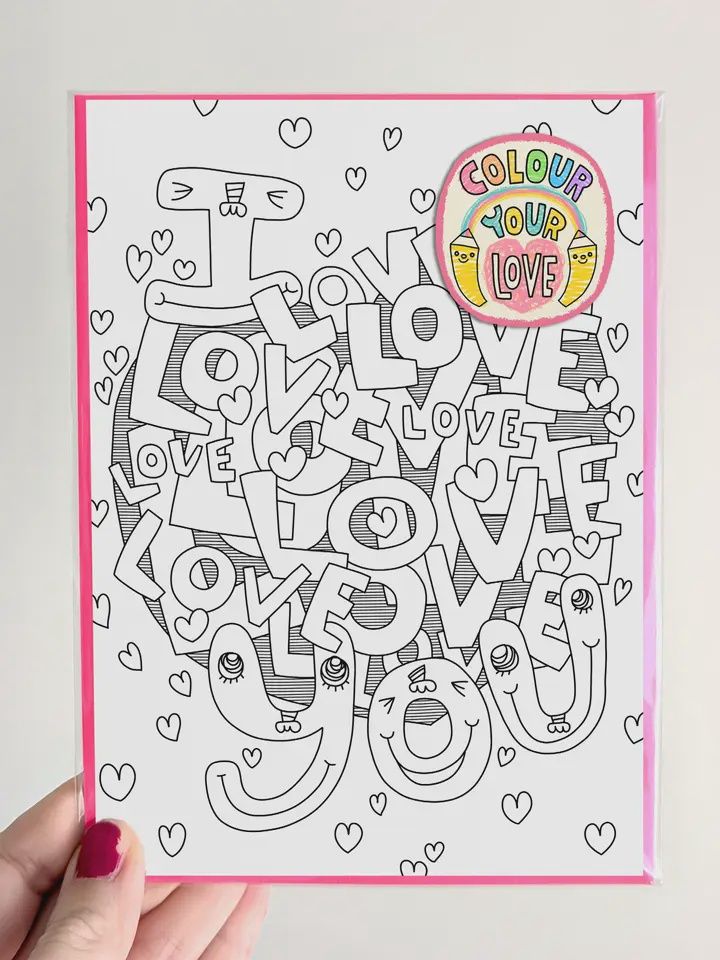 COLOUR
YOUR
LOVE
I
LOVE
LOVE
LOVE
LOVE
LOVE
LOVE
LOVE
LOVE
LOVE
LOVE
you